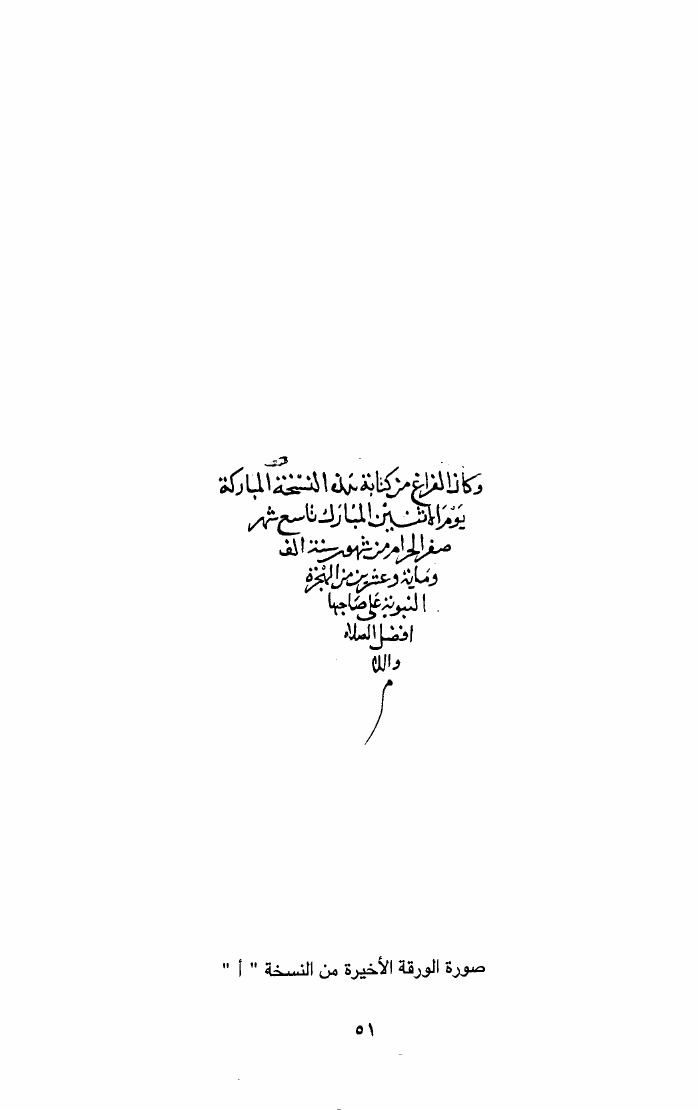 وكان الفراغ من كتابة هذه النسخة المباركة
يوم الاثنين المبارك تاسع شهر
صفر الحرام من شهور سنة الف
وماية وعشرين من الهجرة
النبوية على صاحبها
افضل الصلاه
والسلا
م
صورة الورقة الأخيرة من النسخة " أ "
٥١